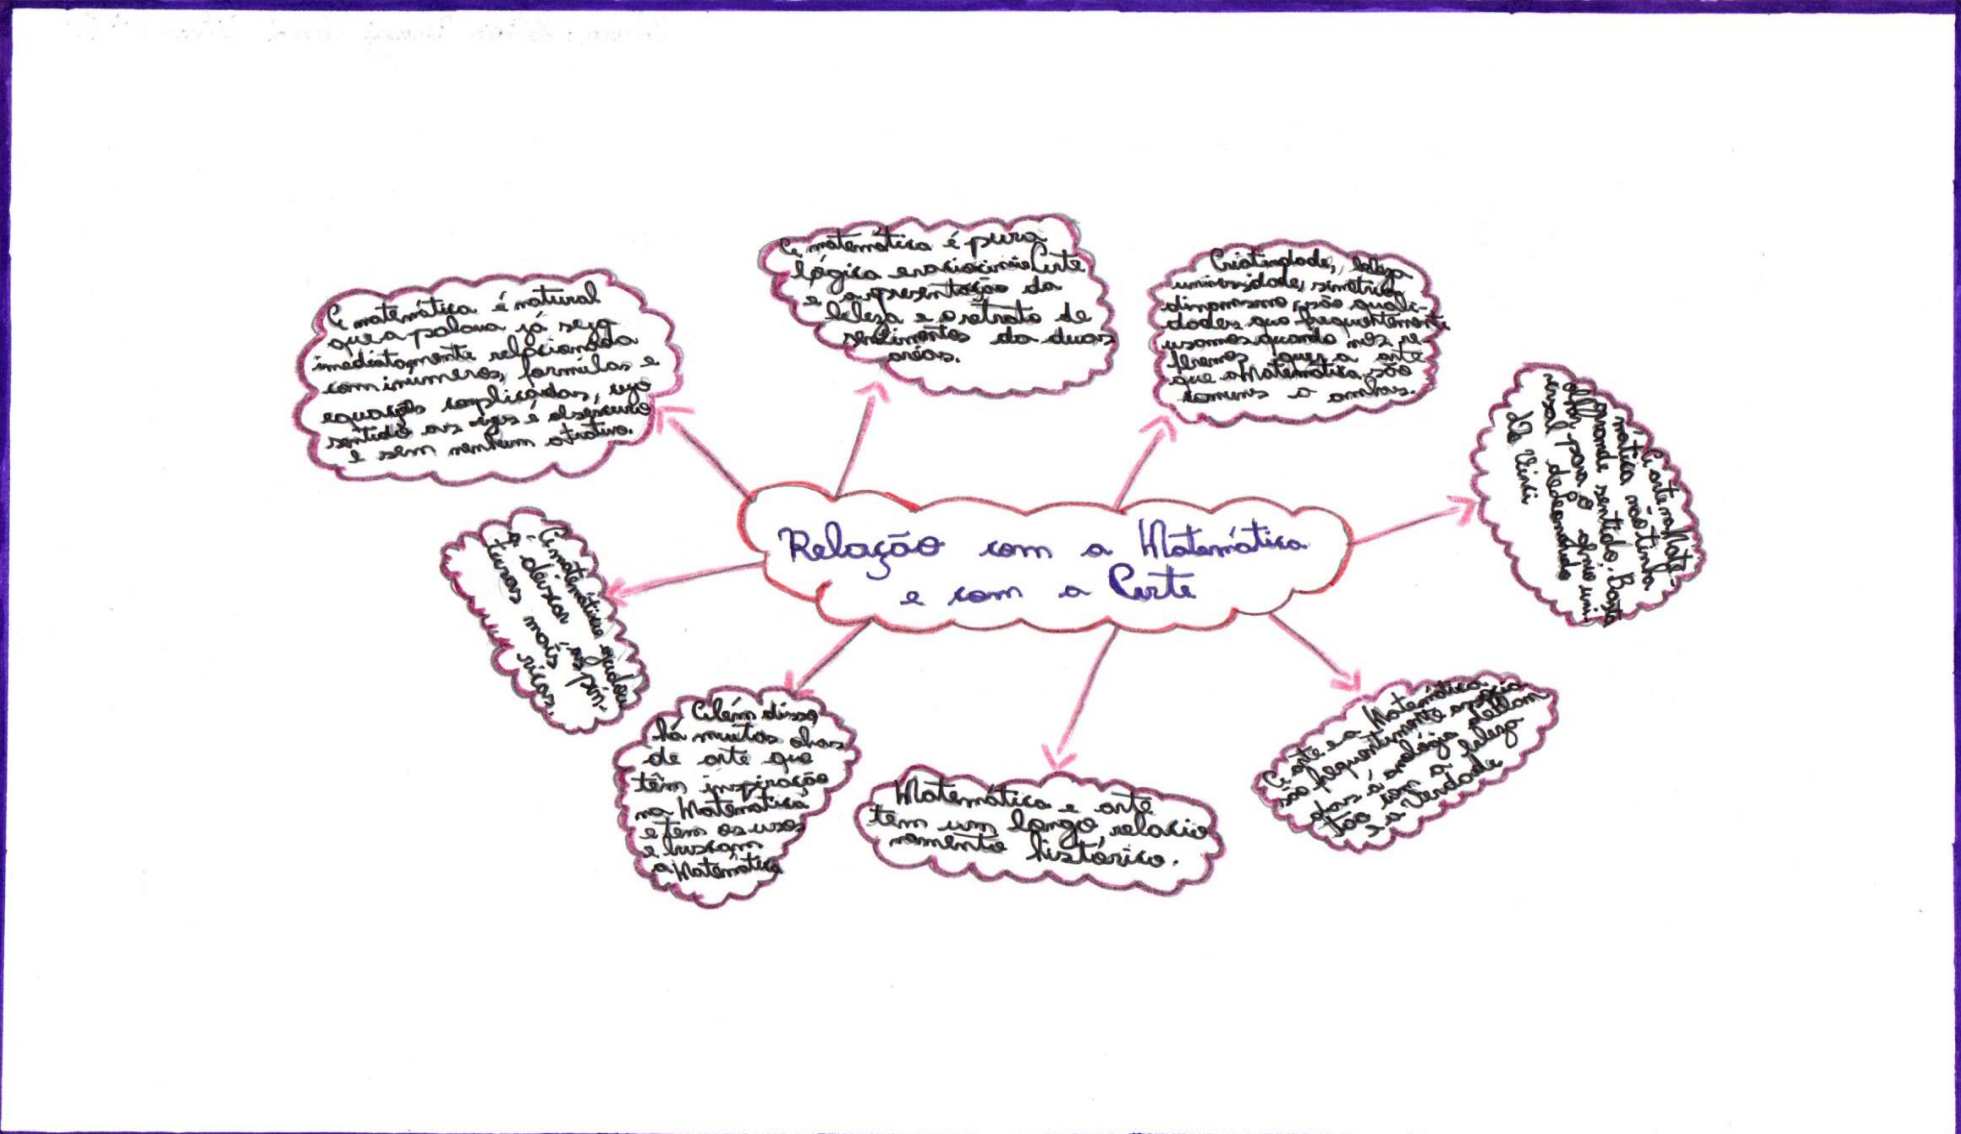 Relação com a Matemática
e com a Arte
A matemática é natural
que a palavra já seja
imediatamente relacionada
com inúmeros, formulas e
equações complicadas, cujo
sentido as vezes é obscuro
e sem nenhum atrativo.
A matemática é pura
lógica e raciocínio Arte
e a apresentação da
beleza e o retrato de
sentimentos da duas
areas.
Criatividade, beleza
universidade, simetria
dinamismo, são quali-
dades que frequentemente
usamos quando nos re-
feremos quer a arte
que a Matemática, são
comuns a ambas.
A arte na Mate-
mática não tinha
grande sentido. Basta
olhar para o génio uni-
versal de Leonardo
da Vinci
A arte e a Matemática
são frequentemente
a analogia
com a beleza
e a verdade
Matemática e arte
tem um longo relacio
namento histórico.
Além disso
há muitas obras
de arte que
têm inspiração
na Matemática
e tem os usos
e buscam
a Matemática
A matemática ajudou
a deixar as pin-
turas mais
ricas.